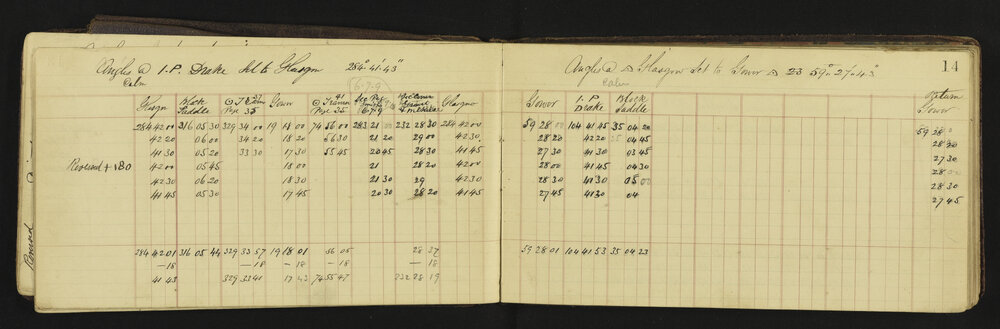 Angles @ I.P. Drake Set to Glasgow 284° 41' 43"
Calm
6-7-9
Glasgow Block Saddle Gower Glasgow
Page 35 Page 35 6-7-9
284 42 00 316 05 30 329 34 00 19 18 00 74 56 00 283 21 00 232 28 30 284 42 00
42 20 06 00 34 20 18 20 56 30 21 20 29 00 42 30
41 30 05 20 33 30 17 30 55 45 20 45 28 30 41 45
Reversed + 180 42 00 05 45 18 00 21 28 20 42 00
42 30 06 20 18 30 21 30 29 42 30
41 45 05 30 17 45 20 30 28 20 41 45
284 42 01 316 05 44 329 33 57 19 18 01 56 05 28 37
—18 —18 —18 —18 —18
41 43 329 33 41 17 43 74 55 47 232 28 19
Reversed
14
Angles @ △ Glasgow Set to Gower △ 23 59° 27' 43"
Calm
Gower I.P. Drake Block Saddle Return Gower
59 28 00 104 41 45 35 04 20 59 28 00
28 20 42 20 04 45 28 30
27 30 41 30 03 45 27 30
28 00 41 45 04 30 28 00
28 30 41 30 05 00 28 30
27 45 41 30 04 27 45
59 28 01 104 41 53 35 04 23